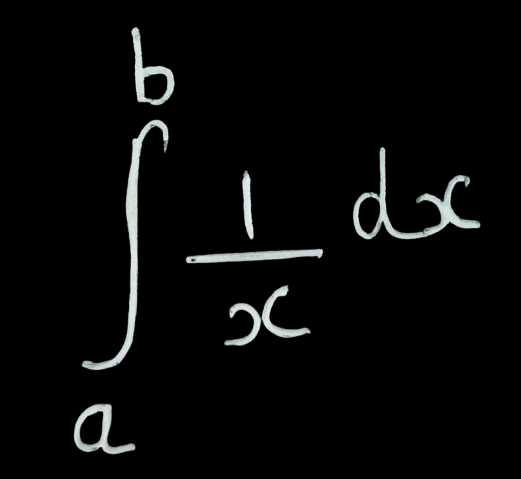 ∫_a^b 1/x dx